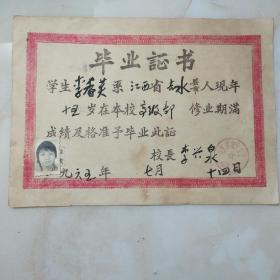 毕业证书
学生李春英系江西省吉水县人现年
十五岁在本校高级部修业期满
成绩及格准予毕业此证
校長李兴泉
一九六五年七月十四日